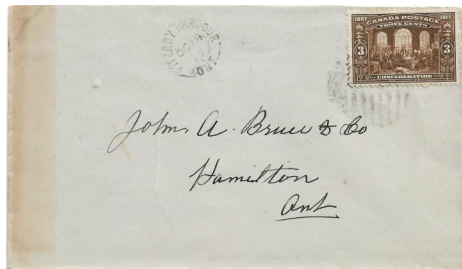 FITZROY HARBOUR
ONT.
OC
1867 CANADA POSTAGE 1917
THREE CENTS
3 3
CONFEDERATION
John. A. Bruce & Co
Hamilton
Ont